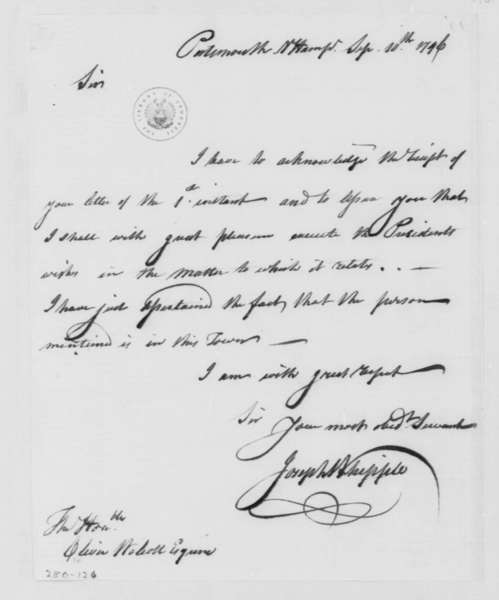 Portsmouth N Hamp.r Sep. 10th 1796
Sir
THE LIBRARY OF CONGRESS
I have to acknowledge the receipt of
your letter of the 1st instant and to assure you that
I shall with great pleasure execute the Presidents
wishes in the matter to which it relates . . —
I have just ascertained the fact, that the person
mentioned is in this Town —
I am with great respect
Sir
Your most obed.t Servant
Joseph Whipple
The Hon.ble
Oliver Wolcott Esquire
280-126